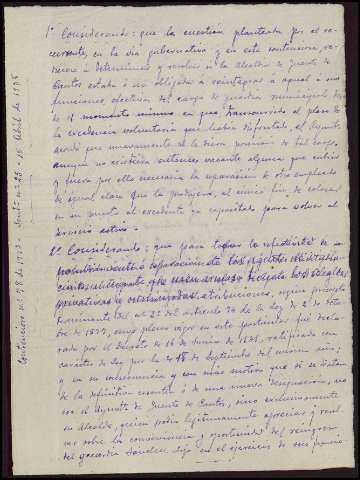 1º Considerando: que la cuestión planteada por el re-
currente, en la vía gubernativa y en esta contenciosa, se
reduce a determinar y resolver si la Alcaldía de Puente de
estaba o no obligada a reintegrar a aquel a sus
funciones efectivas del cargo de guardia municipal des-
de el momento mismo en que, transcurrido el plazo de
la excedencia voluntaria que había disfrutado, el Ayunto
acordó que nuevamente se le diera posesión de tal cargo,
aunque no existiera entonces vacante alguna que cubrir
y fuera por ello necesaria la separación de otro empleado
de igual clase que la produjera, al único fin de colocar
en su puesto al excedente ya capacitado para volver al
servicio activo.
2º Considerando: que para
nombramiento o separación de los agentes de
privativas y atribuciones, según precepto
terminante del nº 2º del artículo 74 de la Ley de 2 de Octu-
bre de 1877, cuyo pleno vigor en este particular fué decla-
rado por el Decreto de 16 de Junio de 1931, ratificado con
carácter de Ley por la de 15 de Septiembre del mismo año;
y en su consecuencia y con más motivo que si se tratara
de la definitiva o de una nueva designación, no
era el Ayunto de Puente de sino exclusivamente
su Alcalde, quien podía legítimamente apreciar y resol-
ver sobre la conveniencia y oportunidad del reingreso
del guardia Sánchez, bajo en el ejercicio de sus
Contencioso nº 28 de 1933. Sentª nº 25 - 16 Abril de 1935